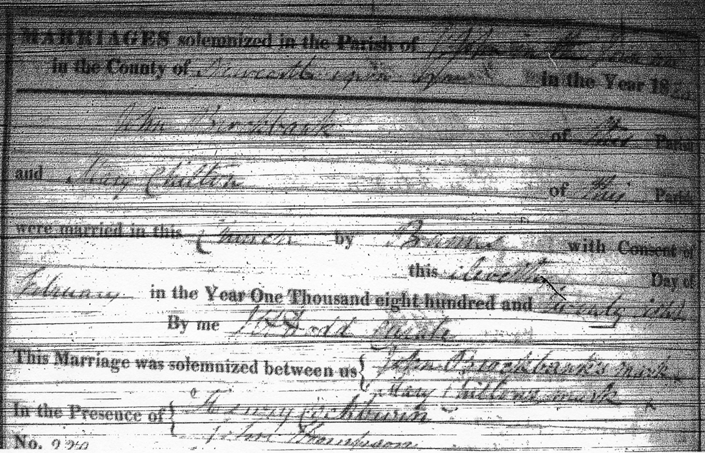 MARRIAGES solemnized in the Parish of St John in the
in the County of Newcastle upon Tyne in the Year 18
John Brockbank of this Parish
and Mary Chilton of this Parish
were married in this Church by Banns with Consent of
this eleventh Day of
February in the Year One Thousand eight hundred and twenty
By me
This Marriage was solemnized between us { John Brockbank's mark x
Mary Chilton's mark x
In the Presence of { Henry Cockburn
John Thompson
No.